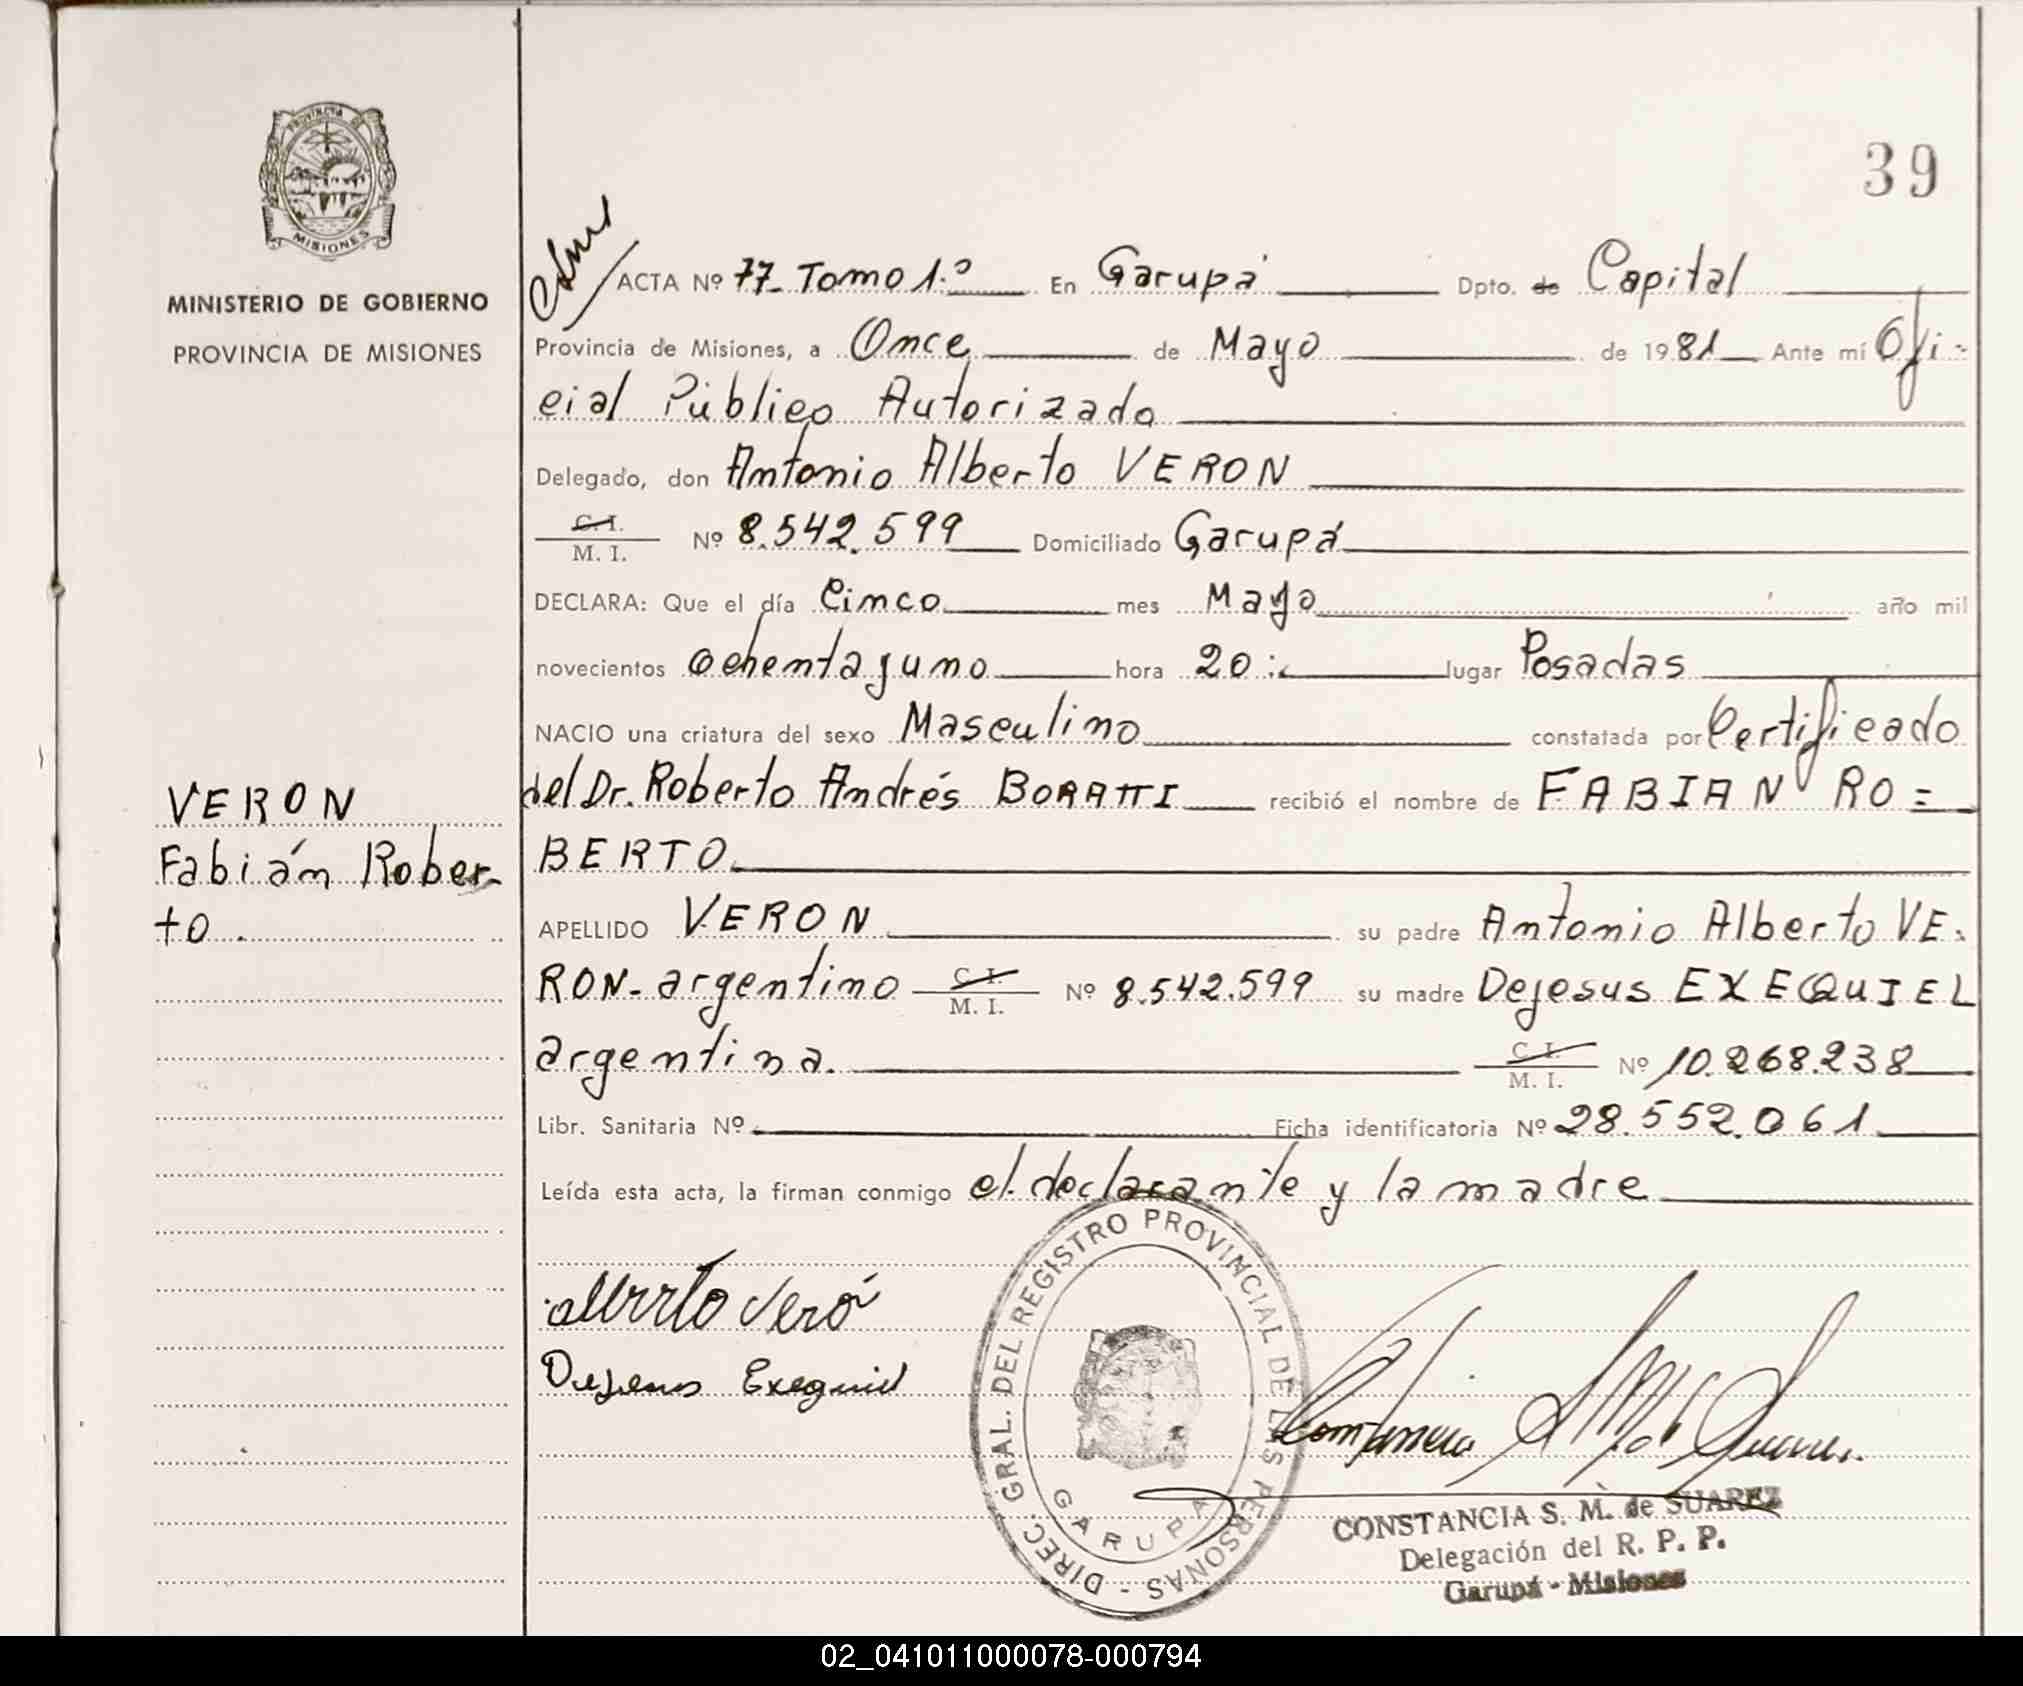 39
PROVINCIA DE
MISIONES
MINISTERIO DE GOBIERNO
PROVINCIA DE MISIONES
ACTA Nº 77- Tomo 1.º En Garupá Dpto. de Capital
Provincia de Misiones, a Once de Mayo de 1981 Ante mí Ofi-
cial Público Autorizado
Delegado, don Antonio Alberto VERON
C. I.
M. I. Nº 8.542.599 Domiciliado Garupá
DECLARA: Que el día Cinco mes Mayo año mil
novecientos ochentayuno hora 20:- lugar Posadas
NACIO una criatura del sexo Masculino constatada por Certificado
del Dr. Roberto Andrés BORATTI recibió el nombre de FABIAN RO=
BERTO
VERON
Fabián Rober-
to.
APELLIDO VERON su padre Antonio Alberto VE-
RON- argentino C. I. M. I. Nº 8.542.599 su madre Dejesus EXEQUIEL
argentina. C. I. M. I. Nº 10.268.238
Libr. Sanitaria Nº Ficha identificatoria Nº 28.552.061
Leída esta acta, la firman conmigo el declarante y la madre
Alberto Veró
Dejesus Exequiel
DIREC. GRAL. DEL REGISTRO PROVINCIAL DE LAS PERSONAS -
GARUPA
CONSTANCIA S. M. de SUAREZ
Delegación del R. P. P.
Garupá - Misiones
02_041011000078-000794